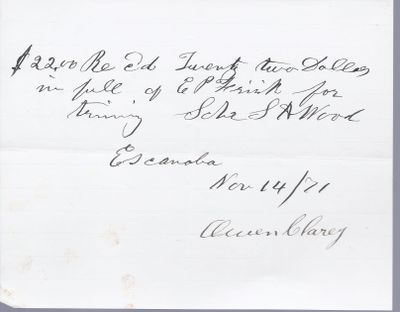 $22.00 Recd Twenty two Dollars
in full of E P Frink for
triming Schr S A Wood
Escanaba
Nov 14/71
Owen Clarey